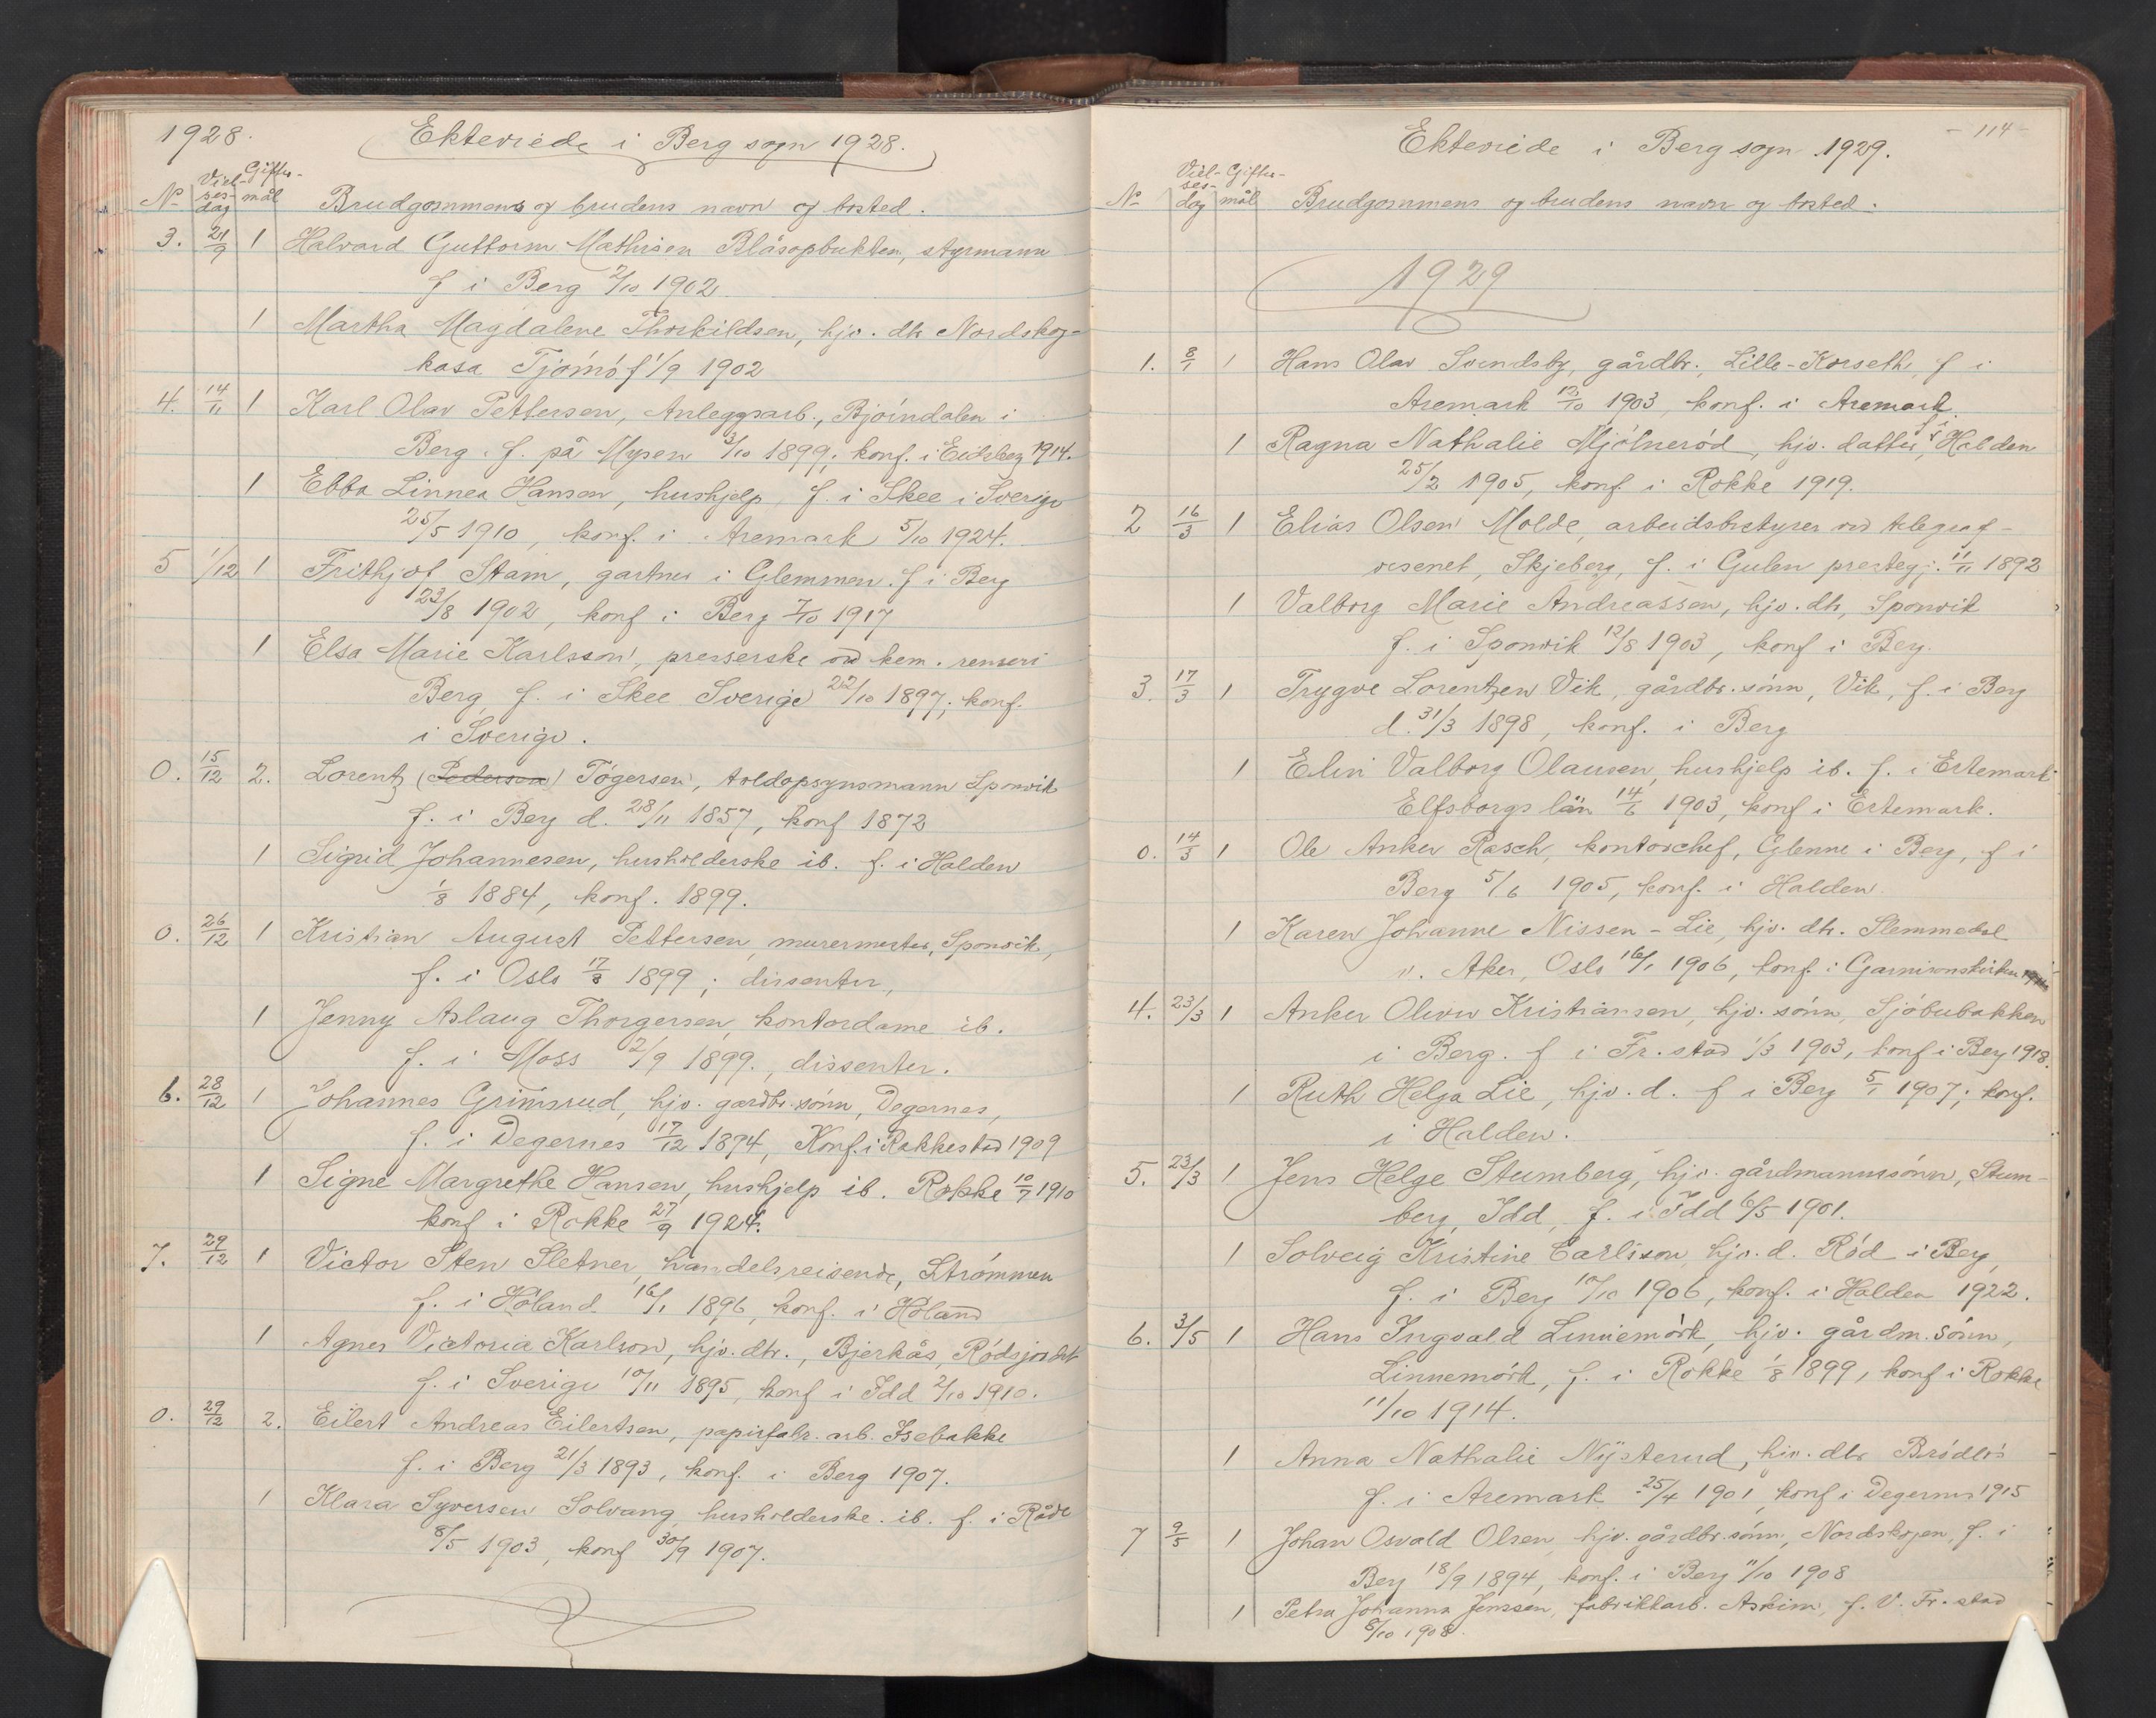 1928.
Ektevviede i Berg sogn 1928.
No Viel-ses-dag Giftes-mål Brudgommens og brudens navn og bosted.
3. 21/9 1 Halvard Guttorm Mathisen Blåsopbukten, styrmann
f i Berg 2/10 1902
1 Martha Magdalene Thorkildsen, hjv. dtr Nordskog-
kasa Tjömö f 1/9 1902
4. 14/11 1 Karl Olav Pettersen, Anleggsarb., Bjørndalen i
Berg. f. på Mysen 3/10 1899; konf. i Eidsberg 1914.
1 Ebba Linnea Hansen, hushjelp, f. i Skee i Sverige
25/5 1910, konf. i Aremark 5/10 1924.
5 1/12 1 Frithjof Stam, gartner i Glemmen. f i Berg
23/8 1902, konf i Berg 7/10 1917
1 Elsa Marie Karlsson, presserske ved kem. renseri
Berg, f. i Skee Sverige 22/10 1897; konf.
i Sverige.
0. 15/12 2. Lorentz (Pedersen) Tögersen, toldopsynsmann Sponvik
f. i Berg d. 28/11 1857, konf 1872
1 Sigrid Johannesen, husholderske ib. f. i Halden
1/8 1884, konf. 1899.
0. 26/12 1 Kristian August Pettersen, murermester, Sponvik,
f. i Oslo 17/8 1899; dissenter,
1 Jenny Aslaug Thorgersen, kontordame ib.
f. i Moss 2/9 1899., dissenter.
6. 28/12 1 Johannes Grimsrud, hjv. gardbr. sönn, Degernes,
f. i Degernes 17/12 1894, Konf. i Rakkestad 1909
1 Signe Margrethe Hansen, hushjelp ib. Rokke 10/7 1910
konf i Rokke 27/9 1924.
7. 29/12 1 Victor Sten Sletner, handelsreisende, Strømmen
f. i Höland 16/1 1896, konf. i Höland
1 Agnes Victoria Karlson, hjv. dtr., Bjerkås, Rödsjordet
f. i Sverige 10/11 1895, konf i Idd 2/10 1910.
0. 29/12 2. Eilert Andreas Eilertsen, papirfabr. arb. Isebakke
f. i Berg 21/3 1893, konf. i Berg 1907.
1 Klara Syversen Solvang, husholderske. ib. f. i Råde
8/5 1903, konf 30/9 1907.
- 114 -
Ektevviede i Berg sogn 1929.
No Viel-ses-dag Giftes-mål Brudgommens og brudens navn og bosted.
1929
1. 8/1 1 Hans Olav Svendsby, gårdbr., Lille-Korseth, f i
Aremark 13/10 1903, konf. i Aremark.
1 Ragna Nathalie Mjölneröd, hjv. datter, f i Halden
25/2 1905, konf. i Rokke 1919.
2 16/3 1 Elias Olsen Molde, arbeidsbestyrer ved telegraf-
vesenet, Skjeberg, f. i Gulen prestegj. 11/11 1892
1 Valborg Marie Andreassen, hjv. dtr, Sponvik
f. i Sponvik 12/8 1903, konf i Berg.
3. 17/3 1 Trygve Lorentzen Vik, gårdbr. sönn, Vik, f. i Berg
d. 31/3 1898, konf. i Berg
1 Elin Valborg Olausen, hushjelp ib. f. i Ertemark
Elfsborgs län 14/6 1903, konf i Ertemark.
0. 14/3 1 Ole Anker Rasch, kontorchef, Glenne i Berg, f i
Berg 5/6 1905, konf. i Halden.
1 Karen Johanne Nissen-Lie, hjv. dtr. Slemmedal
v. Aker, Oslo 16/1 1906, konf. i Garnisonskirken
4. 23/3 1 Anker Oliver Kristiansen, hjv. sönn, Sjöbubakken
i Berg. f i Fr.stad 1/3 1903, konf i Berg 1918.
1 Ruth Helga Lie, hjv. d. f i Berg 5/1 1907; konf.
i Halden.
5. 23/3 1 Jens Helge Stumberg, hjv. gårdmannssönn, Stum-
berg, Idd, f. i Idd 6/5 1901.
1 Solveig Kristine Carlsson, hjv. d. Röd i Berg,
f. i Berg 10/10 1906, konf. i Halden 1922.
6. 3/5 1 Hans Ingvald Linnemörk, hjv. gårdm. sönn,
Linnemörk, f. i Rokke 1/8 1899, konf i Rokke
11/10 1914.
1 Anna Nathalie Nysterud, hjv. dtr Brödlös
f. i Aremark 25/4 1901 konf i Degernes 1915
7 9/5 1 Johan Osvald Olsen, hjv. gårdbr. sönn, Nordskogen, f. i
Berg 18/9 1894, konf. i Berg 11/10 1908
1 Petra Johanna Jenssen, fabrikkarb. Askim, f. V. Fr.stad
8/10 1908.